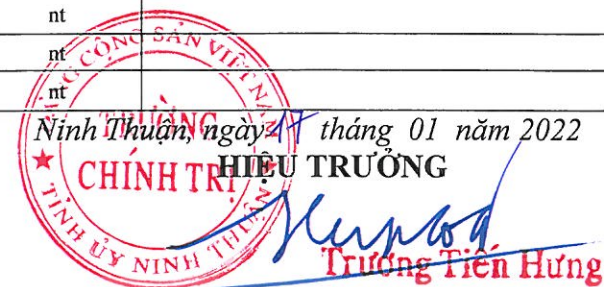 nt
nt
nt
Ninh Thuận, ngày 17 tháng 01 năm 2022
HIỆU TRƯỞNG
ĐẢNG CỘNG SẢN VIỆT NAM
TRƯỜNG
CHÍNH TRỊ
TỈNH ỦY NINH THUẬN
Trương Tiến Hưng